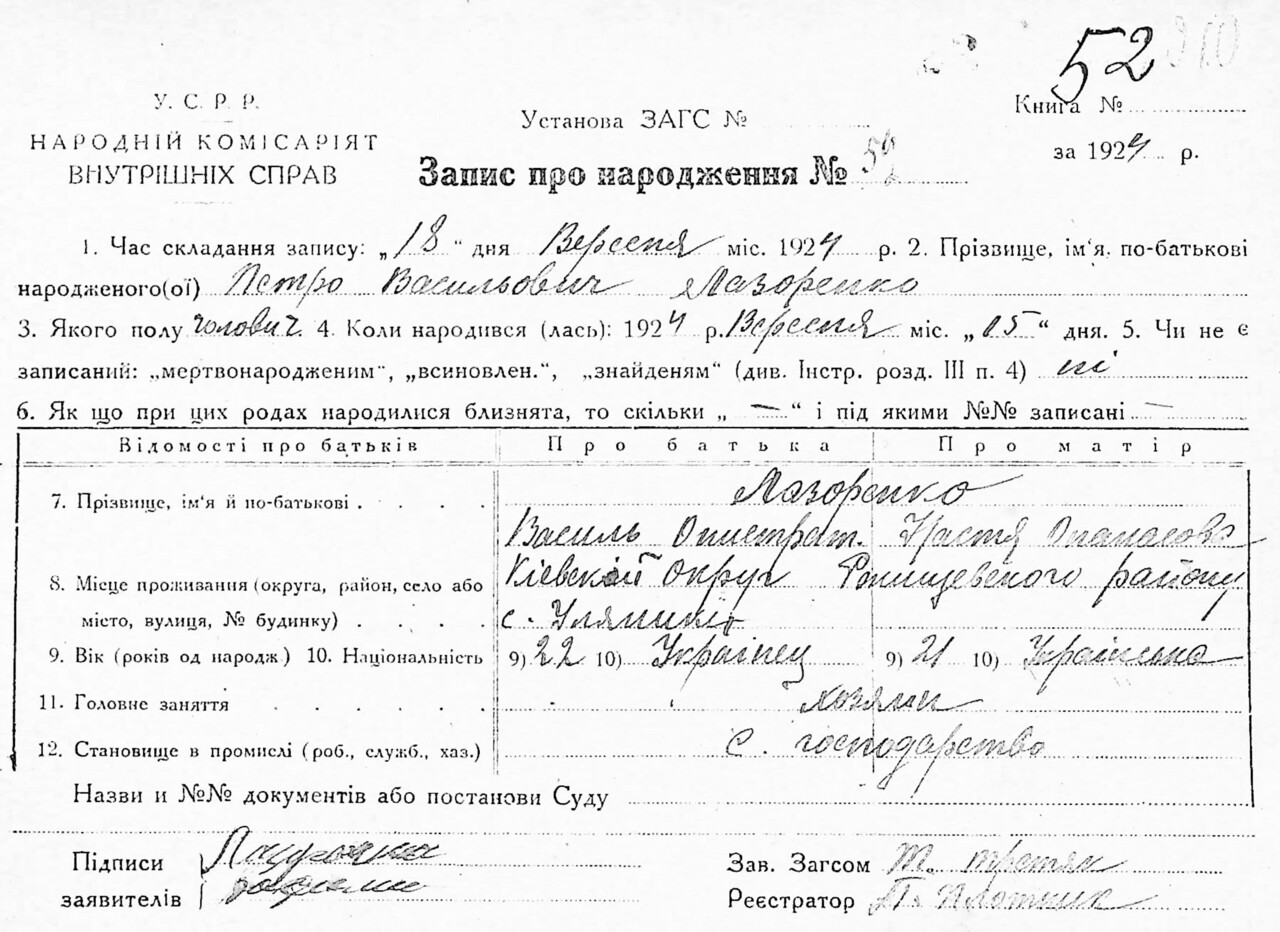 52
У. С. Р. Р.
НАРОДНІЙ КОМІСАРІЯТ
ВНУТРІШНІХ СПРАВ
Установа ЗАГС №
Книга №
за 1924 р.
Запис про народження № 52
1. Час складання запису: „18“ дня Вересня міс. 1924 р. 2. Прізвище, ім‘я, по-батькові
народженого(ої) Петро Васильович Лазоренко
3. Якого полу чолович. 4. Коли народився (лась): 1924 р. Вересня міс. „15“ дня. 5. Чи не є
записаний: „мертвонародженим“, „всиновлен.“, „знайденям“ (див. Інстр. розд. III п. 4) ні
6. Як що при цих родах народилися близнята, то скільки „—“ і під якими №№ записані —
Відомості про батьків Про батька Про матір
7. Прізвище, ім‘я й по-батькові . . . . Лазоренко
Василь Онистрат. Настя Опанасовa
8. Місце проживання (округа, район, село або Кіевской округ Ржищевского району
місто, вулиця, № будинку) . . . . с. Уляники
9. Вік (років од народж.) 10. Національність 9) 22 10) Українец 9) 21 10) Українська
11. Головне заняття . . . . . . хозяин
12. Становище в промислі (роб., служб., хаз.) с. господарство
Назви и №№ документів або постанови Суду
Підписи
заявителів
Зав. Загсом Т. Третяк
Реєстратор П. Плотник